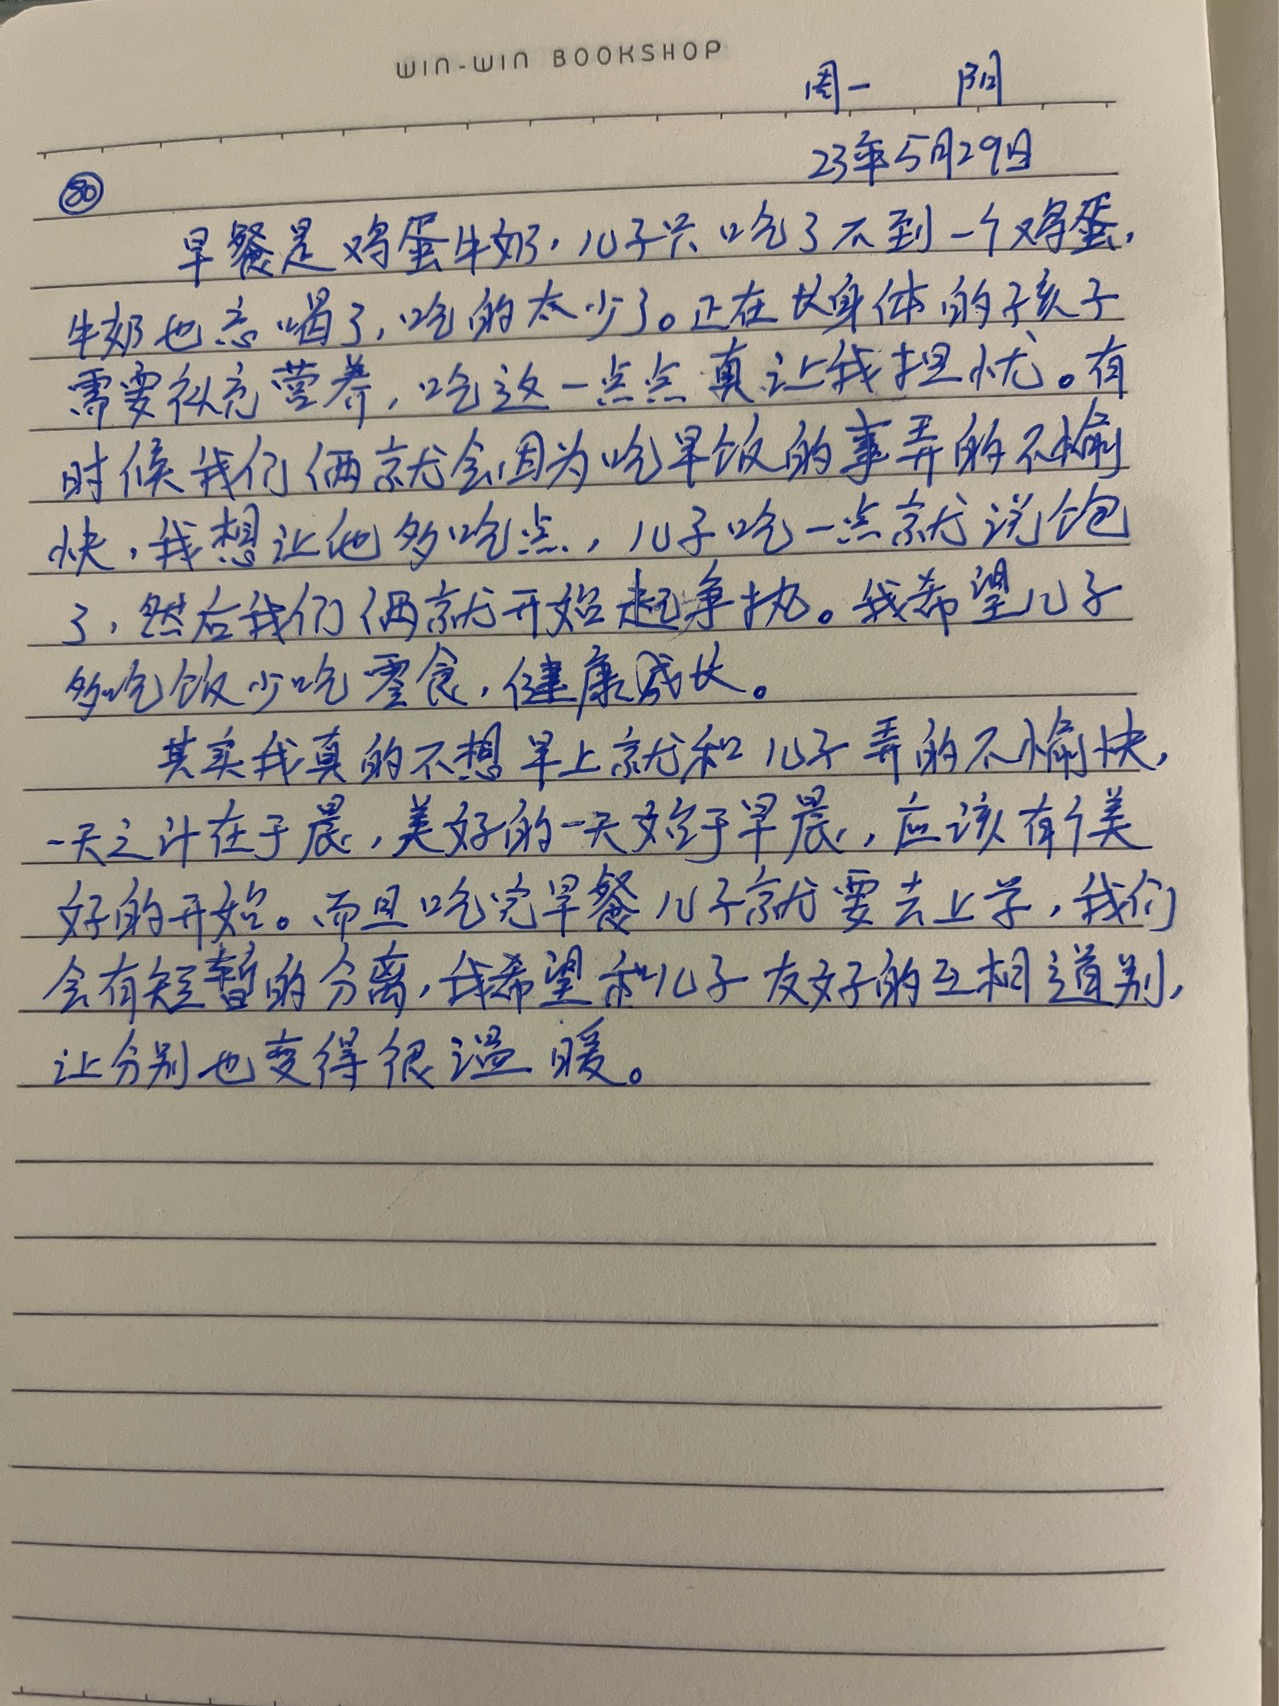 WIN-WIN BOOKSHOP
周一 阴
23年5月29日
80
早餐是鸡蛋牛奶，儿子只吃了不到一个鸡蛋，
牛奶也忘喝了，吃的太少了。正在长身体的孩子
需要补充营养，吃这一点点真让我担忧。有
时候我们俩就会因为吃早饭的事弄的不愉
快，我想让他多吃点，儿子吃一点就说饱
了，然后我们俩就开始起争执。我希望儿子
多吃饭少吃零食，健康成长。
其实我真的不想早上就和儿子弄的不愉快，
一天之计在于晨，美好的一天始于早晨，应该有个美
好的开始。而且吃完早餐儿子就要去上学，我们
会有短暂的分离，我希望和儿子友好的互相道别，
让分别也变得很温暖。